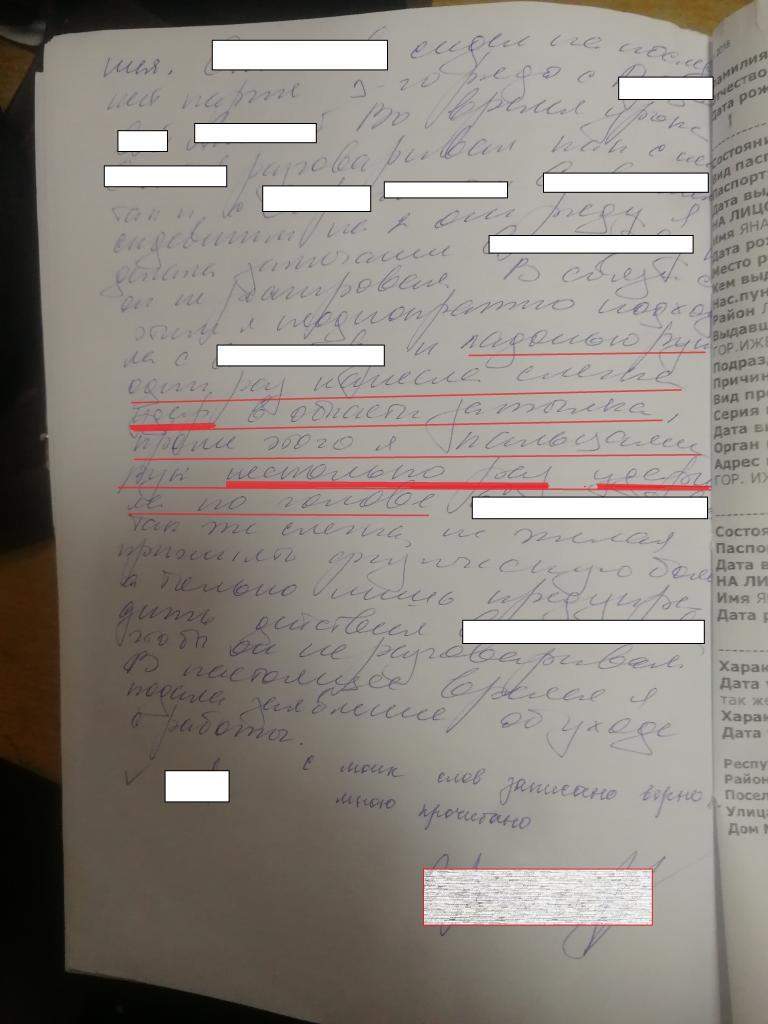 шея. сидел на после
ней парте 3-го ряда с
Во время урока
разговаривал как с
так и с
сидевшим на 2 ом ряду я
делала замечания
он не реагировал. В связи с
этим я неоднократно подходи
ла с и ладонью руки
один раз нанесла слегка
удар в области затылка,
кроме этого я пальцами
рук несколько раз удари
ла по голове
так же слегка, не желая
причинить физическую боль
а только лишь предупре
дить действия
чтобы он не разговаривал.
В настоящее время я
подала заявление об уходе
с работы.
с моих слов записано верно,
мною прочитано
2018
амилия
тчество
Дата рож
Состояни
Вид пасп
Паспорт
Дата выд
НА ЛИЦО
Имя ЯНА
Дата рож
Место р
Кем выд
Нас.пун
Район
Выдавш
ГОР.ИЖЕ
Подразд
Причин
Вид пре
Серия
Дата вы
Орган
Адрес
ГОР. ИЖ
Состоя
Паспо
Дата в
НА ЛИ
Имя Я
Дата р
Харак
Дата
так же
Харак
Дата
Респу
Район
Посел
Улица
Дом №